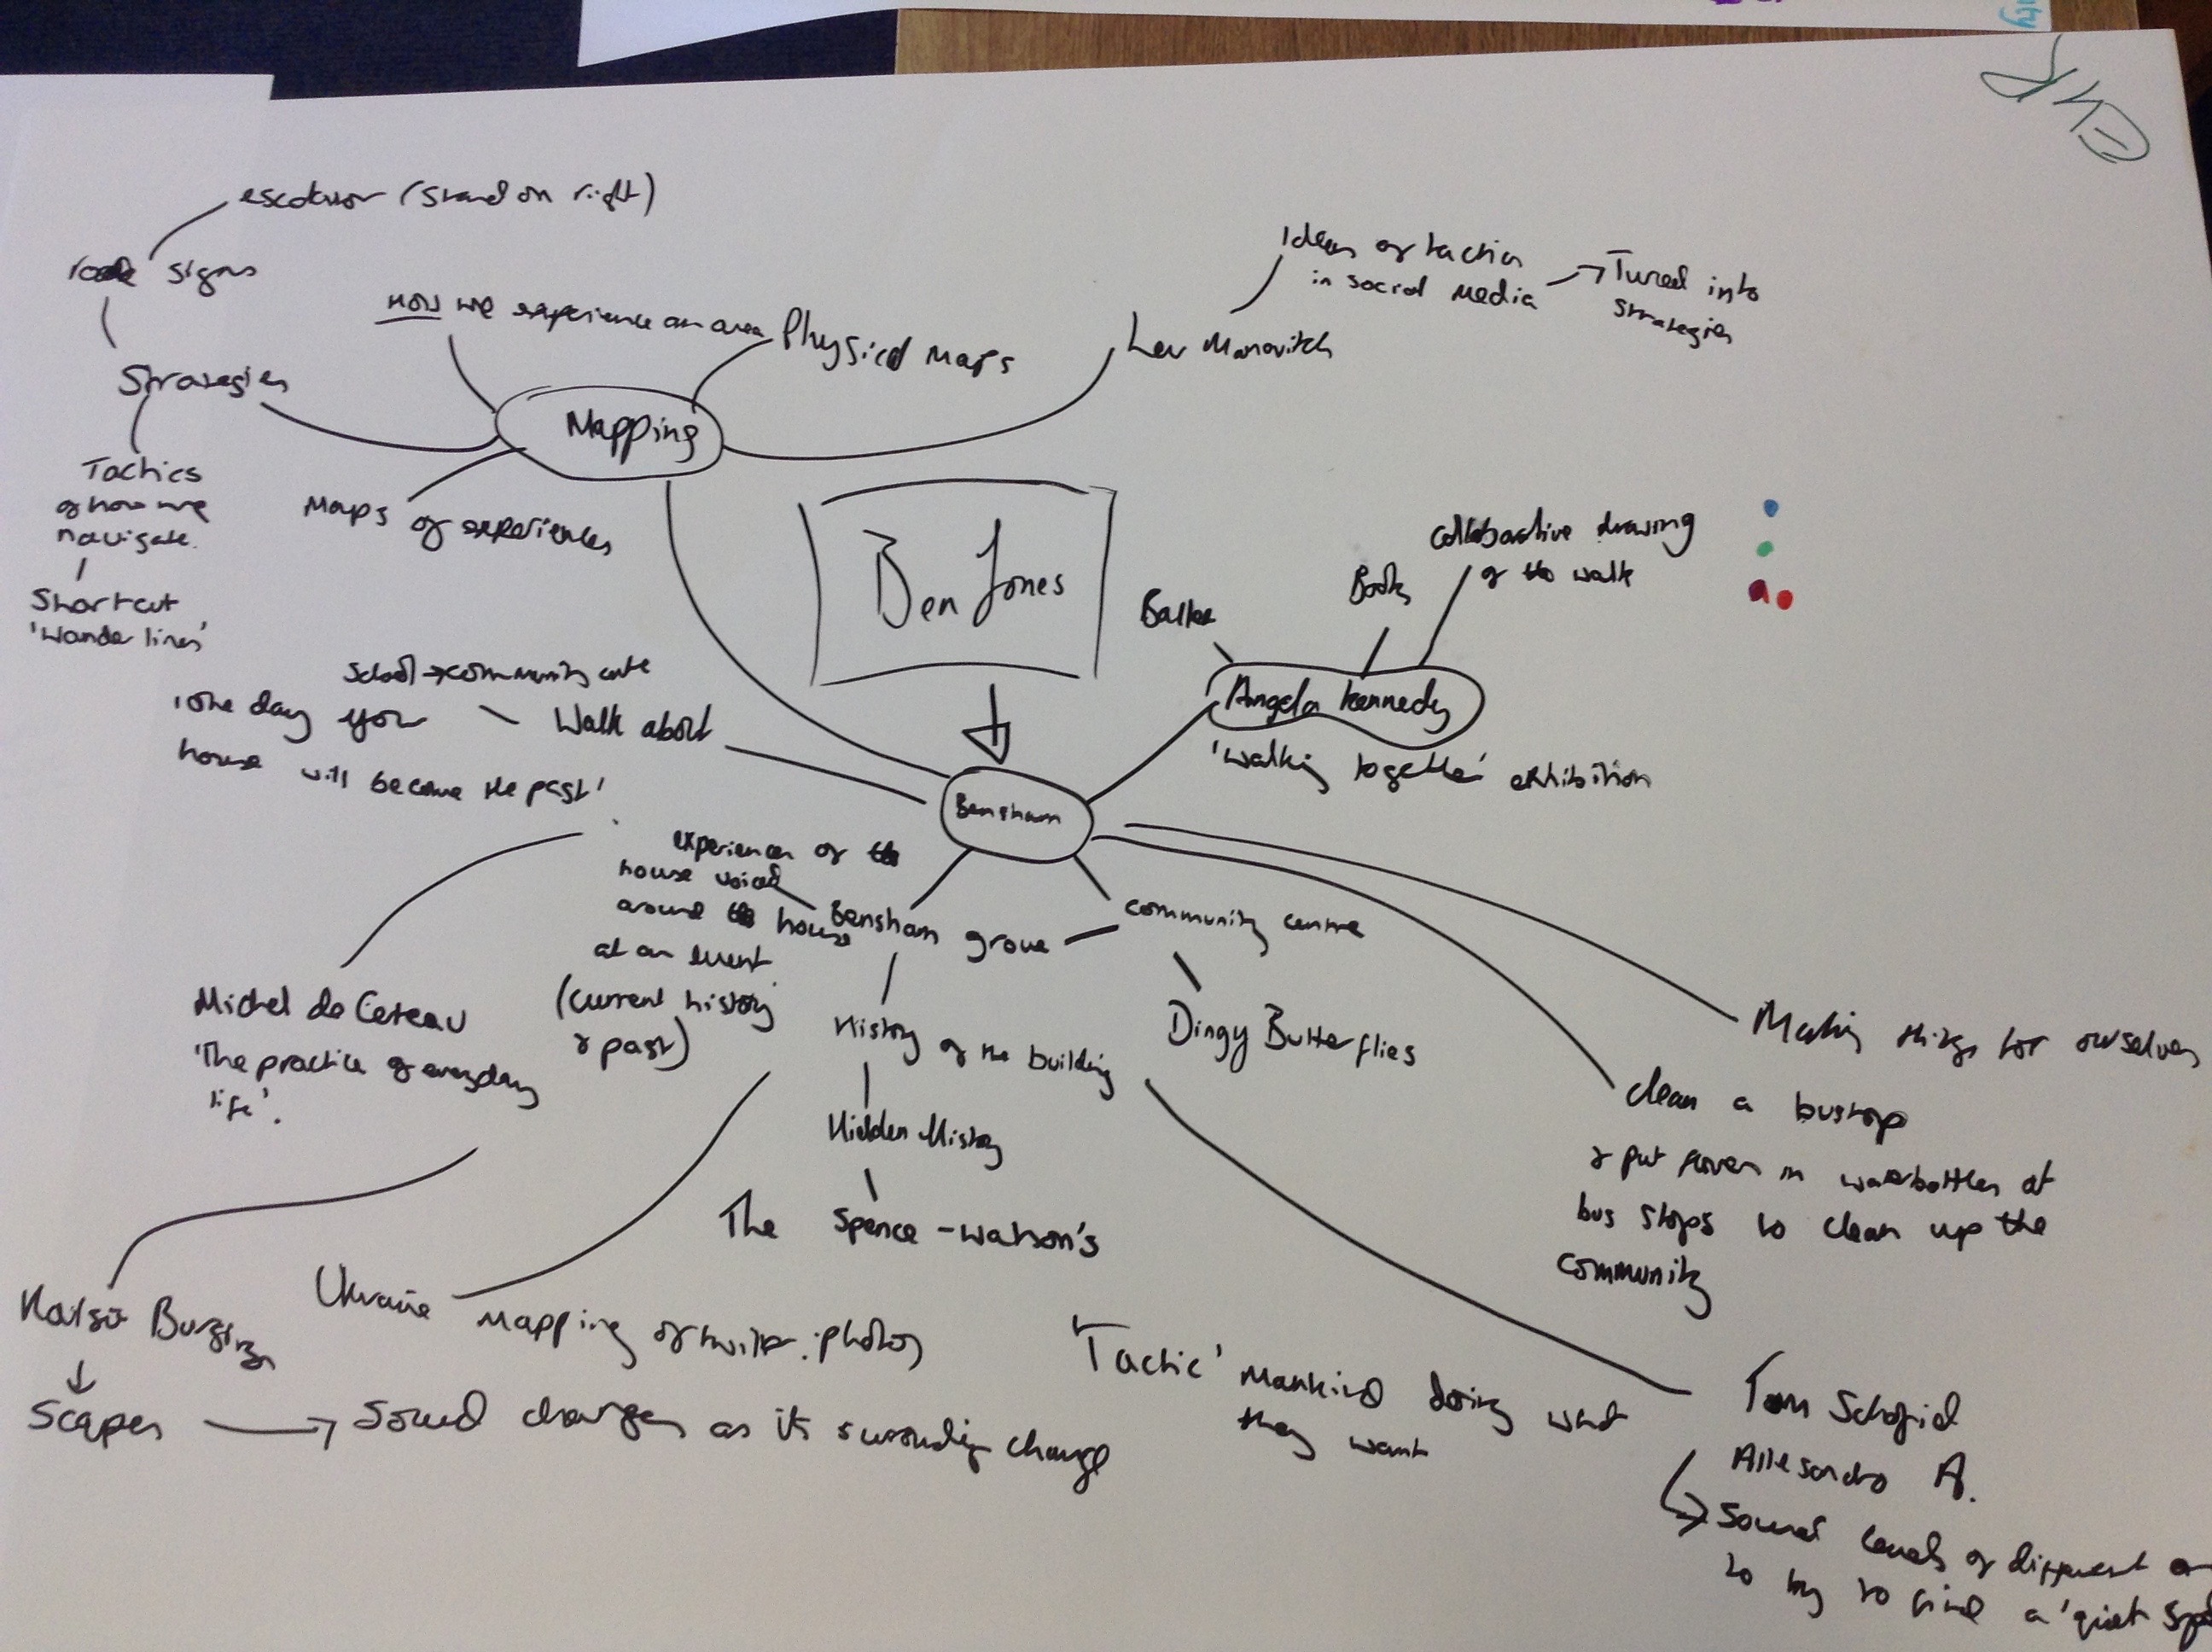 escalator (stand on right)
road signs
Strategies
Tactics
of how we
navigate.
Shortcut
'Wander lines'
How we experience an area
Physical Maps
Mapping
Maps of experiences
Lev Manovitch
Ideas of tactics
in social media
Tured into
strategies
Ben Jones
Ballet
Books
collaborative drawing
of the walk
Angela Kennedy
'walking together' exhibition
School → community centre
Walk about
'One day your
house will become the past'
Bensham
experiences of the
house voiced
around the house
at an event
(current history
& past)
Bensham grove
community centre
Dingy Butterflies
History of the building
Hidden History
The Spence-Watson's
Michel de Ceteau
'The practice of everyday
life'.
Making things for ourselves
clean a bustop
& put flowers in waterbottles at
bus stops to clean up the
community
Ukraine mapping of twitter photos
Scapes → Sound changes as its surrounding change
'Tactic' Mankind doing what
they want
Tom Schofield
Allesandro A.
Sound levels of different
to try to find a 'quiet